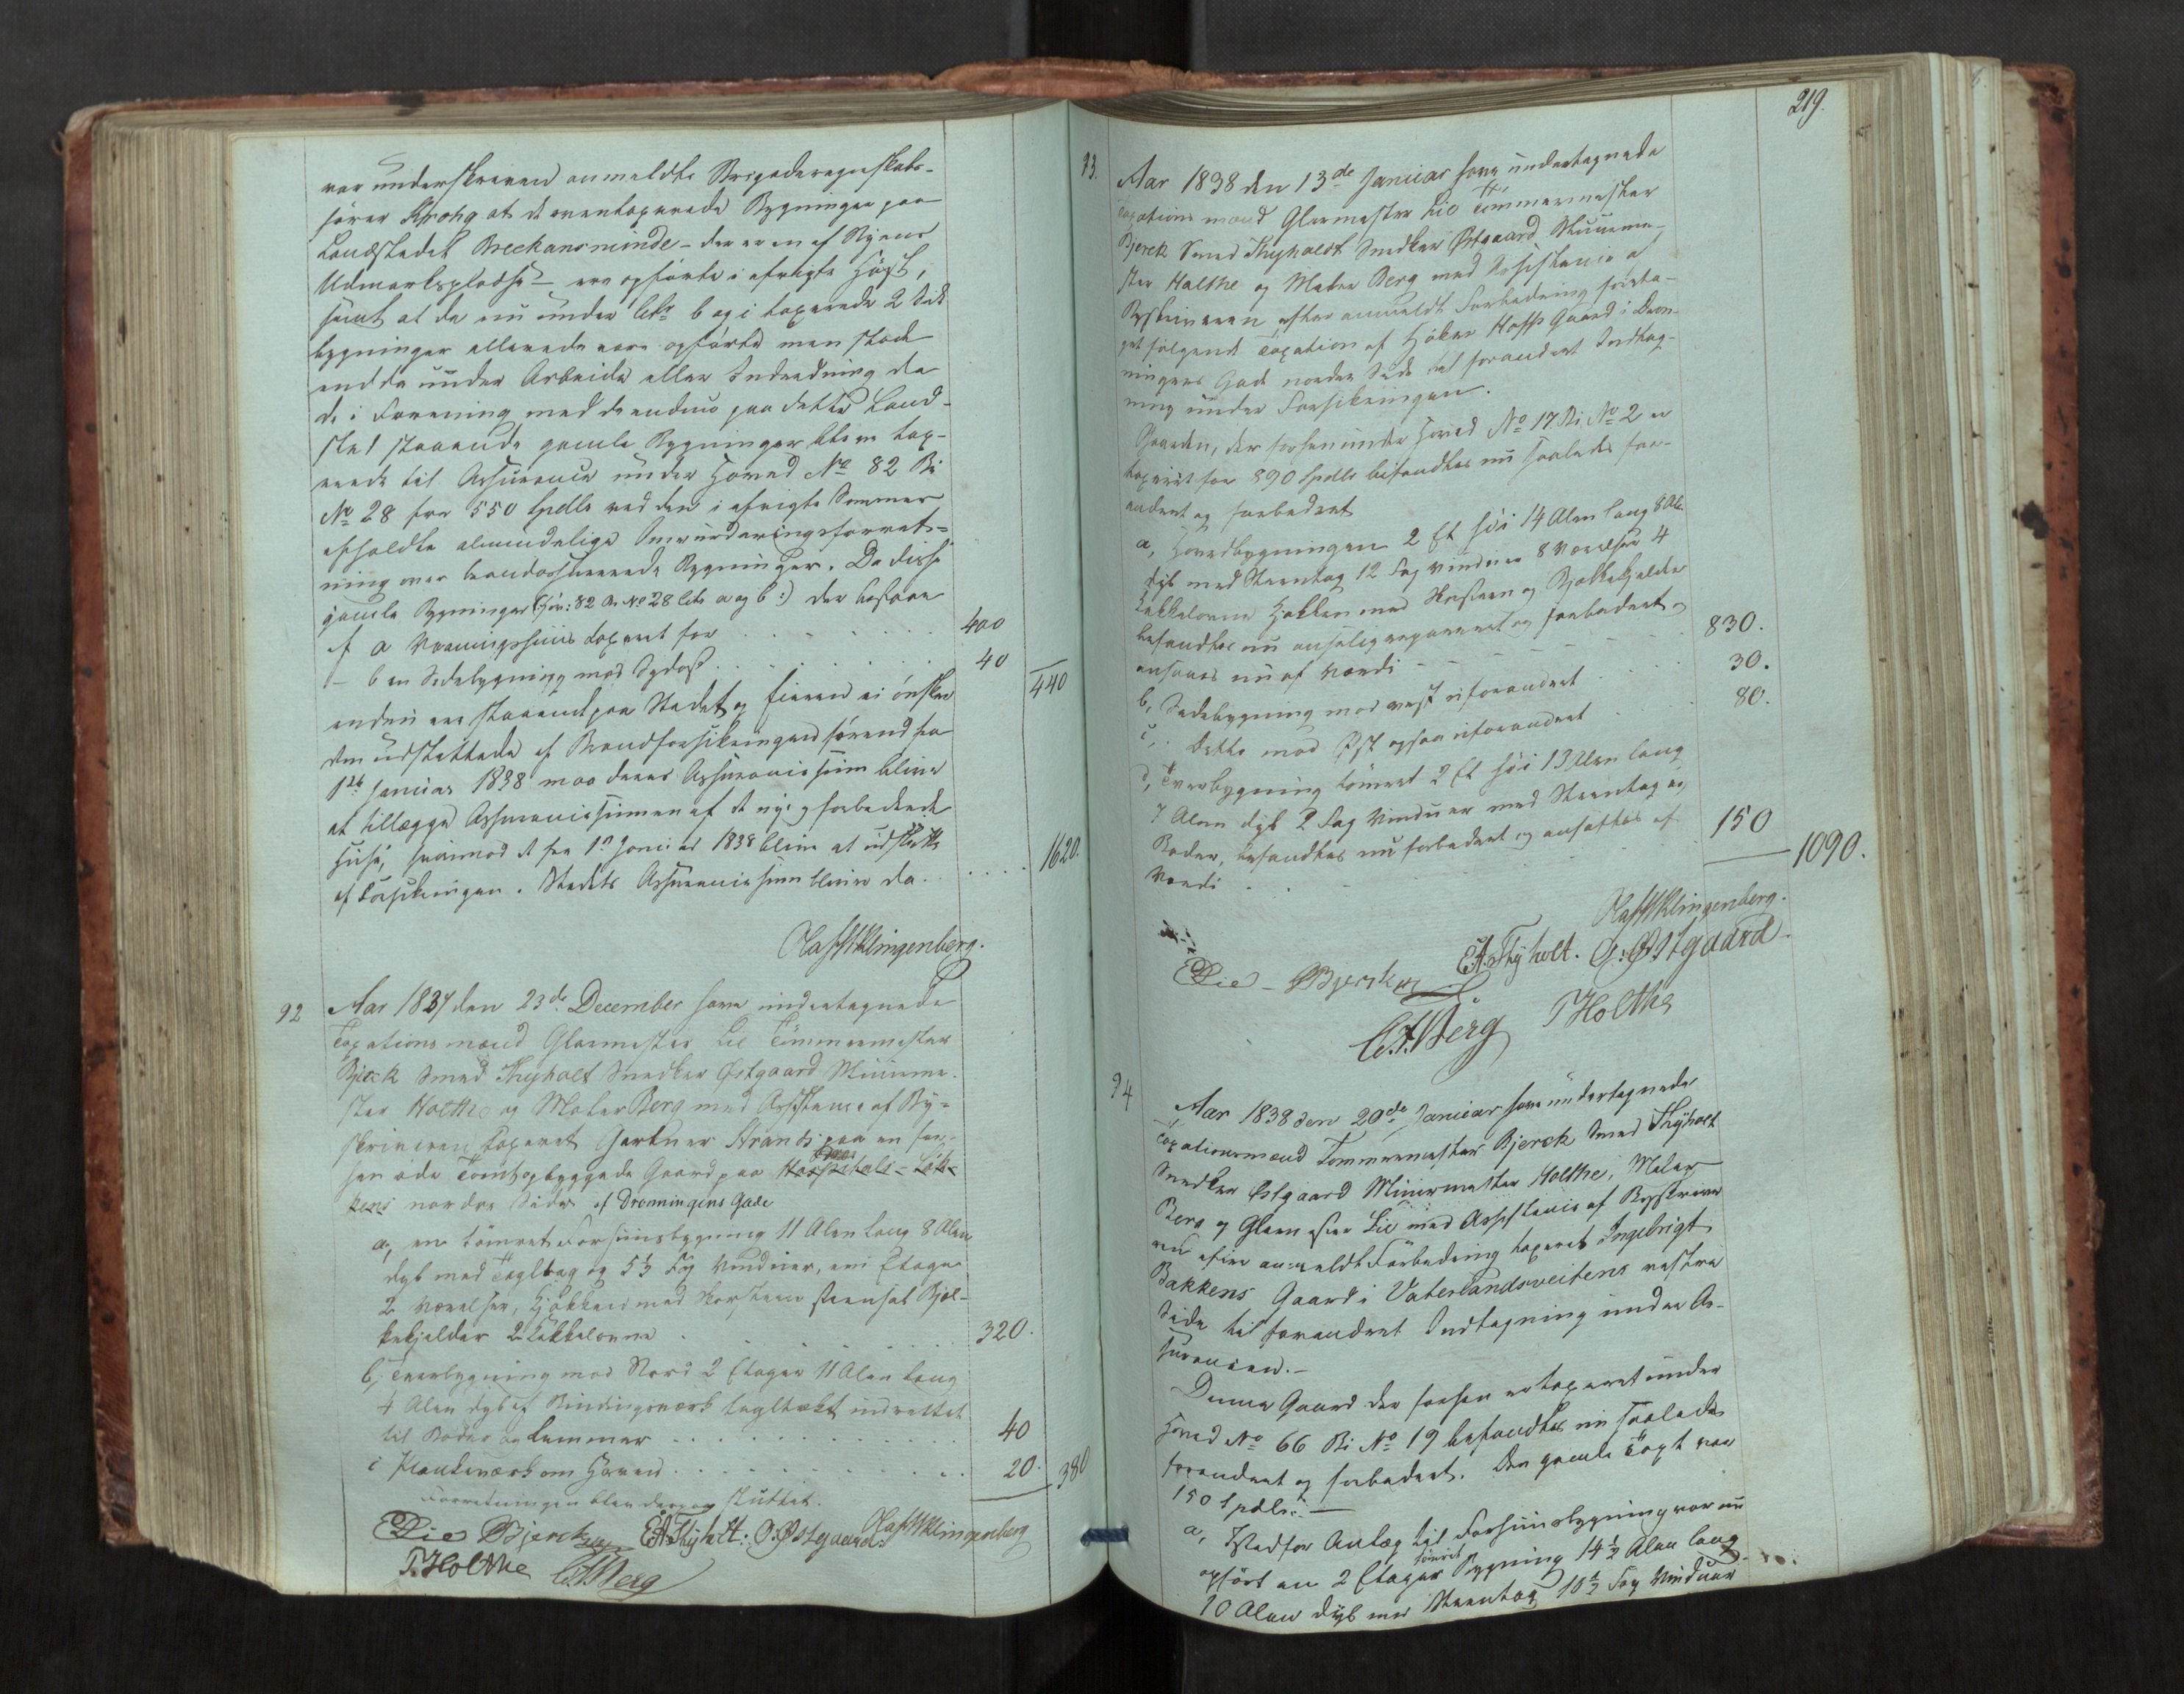 var underskreven anmeldte Brigaderegnskabs-
fører Krohg at de oventaxerede Bygninger paa
Landstedet Breckansminde - der er en af Byens
Udmarkspladse - ere opførte i afvigte Høst,
samt at de nu under litr b og i taxerede 2 Side
bygninger allerede vare opførte men stode
endda under Arbeide eller Indredning da
de i Forening med de endnu paa dette Land-
sted staaende gamle Bygninger bleve tax-
erede til Assurance under Hoved No 82 Bi
No 28 for 550 Spdlr ved den i afvigte Sommer
afholdte almindelige Omvurderingsforret-
ning over brandassurerede Bygninger. Da disse
gamle Bygninger (Hov: 82 Bi No 28 litr a og b:) der bestaae
af a Vaaningshuus taxeret for . . . . . . 400
- b en Sidebygning mod Sydost . . . . . . 40
440
endnu ere staaende paa Stedet og Eieren ei ønsker
dem udslettede af Brandforsikringen førend fra
1ste Januar 1838 maa deres Assurancesum blive
at tillægge Assurancesummen af de nye og forbedrede
Huse, hvorimod de fra 1ste Januar 1838 blive at udslette
af Forsikringen. Stedets Assurancesum bliver da . . . . 1620.
Hass Klingenberg.
92 Aar 1837 den 23de December have undertegnede
Taxationsmænd Glarmester Lie Tømmermester
Bjerck Smed Thyholt Snedker Østgaard Muurme-
ster Holthe og Maler Berg med Assistance af By-
skriveren taxeret Gartner Strands paa en for-
hen øde Tomt opbyggede Gaard paa Hospitals-Løk-
kens nordre Side af Dronningens Gade
a, en tømret Forhuusbygning 11 Alen lang 8 Alen
dyb med Tegltag og 5½ Fag Vinduer, een Etage
2 Værelser, Kjøkken med Skorsteen steensat Bjel-
kekjelder 2 Kakkelovne . . . . 320.
b, Tverbygning mod Nord 2 Etager 11 Alen lang
4 Alen dyb af Bindingsværk tegltækt indrettet
til Boder og Lemmer . . . . . . 40
c Plankeværk om Haven . . . . . . 20. 380
Forretningen blev dermed sluttet.
Hass Klingenberg
Lie Bjerck EA Thyholt: O: Østgaard
T. Holthe C.F. Berg
219.
93. Aar 1838 den 13de Januar have undertegnede
Taxationsmænd Glarmester Lie Tømmermester
Bjerck Smed Thyholdt Snedker Østgaard Muurme-
ster Holthe og Maler Berg med Assistance af
Byskriveren efter anmeldt Forbedring foreta-
get følgende Taxation af Høker Hoffs Gaard i Dron-
ningens Gade nordre Side til forandret Indtag-
ning under Forsikringen.
Gaarden, der forhen under Hoved No 17 Bi No 2 er
taxeret for 890 Spdlr befandtes nu saaledes for-
andret og forbedret
a, Hovedbygningen 2 Et høi 14 Alen lang 8 Alen
dyb med Steentag 12 Fag Vinduer 8 Værelser 4
Kakkelovne Kjøkken med Skorsteen og Bjelkekjelder
befandtes nu anselig repareret og forbedret og
ansaaes nu af Værdi . . . . 830.
b, Sidebygning mod vest uforandret . . . 30.
c, Dette mod Øst ogsaa uforandret . . . 80.
d, Tverbygning tømret 2 Et høi 13 Alen lang
7 Alen dyb 2 Fag Vinduer med Steentag og
Boder, befandtes nu forbedret og ansattes af
Værdi . . . . . 150 1090.
Hass Klingenberg.
Lie - Bjerck EA. Thyholt. O: Østgaard
C.F. Berg T Holthe
94 Aar 1838 den 20de Januar have undertegnede
Taxationsmænd Tømmermester Bjerck Smed Thyholt
Snedker Østgaard Muurmester Holthe, Maler
Berg og Glarmester Lie med Assistance af Byskrive-
ren efter anmeldt Forbedring taxeret Ingebrigt
Bakkens Gaard i Vaterlandsveitens vestre
Side til forandret Indtagning under As-
surancen.-
Denne Gaard der forhen er taxeret under
Hoved No 66 Bi No 19 befandtes nu saaledes
forandret og forbedret. Den gamle Taxt var
150 Spdlr: -
a, Istedfor Anlæg til Forhuusbygning var nu
opført en 2 Etagers tømret Bygning 14½ Alen lang
10 Alen dyb med Steentag 10½ Fag Vinduer